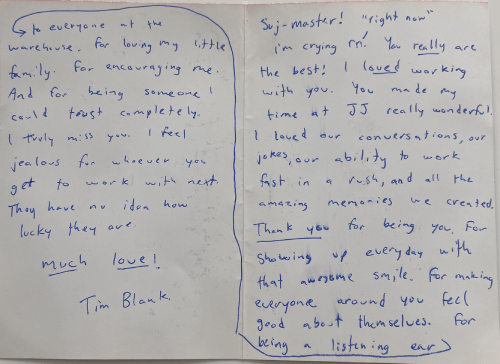 Suj-master! "right now"
i'm crying rn! You really are
the best! I loved working
with you. You made my
time at JJ really wonderful.
I loved our conversations, our
jokes, our ability to work
fast in a rush, and all the
amazing memories we created.
Thank you for being you. For
showing up everyday with
that awesome smile. For making
everyone around you feel
good about themselves. For
being a listening ear
to everyone at the
warehouse. For loving my little
family. For encouraging me.
And for being someone I
could trust completely.
I truly miss you. I feel
jealous for whoever you
get to work with next.
They have no idea how
lucky they are.
much love!
Tim Blank